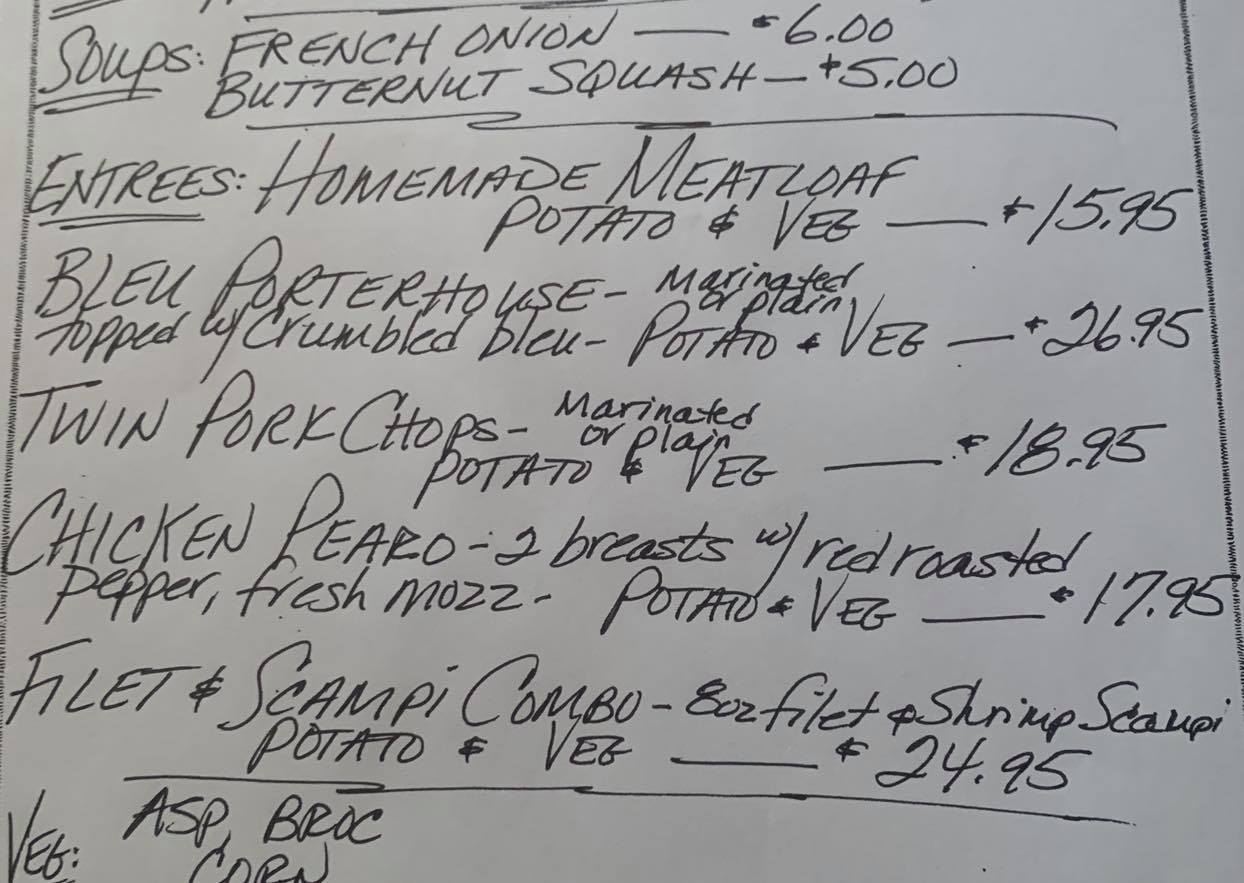 SOUPS: FRENCH ONION — $6.00
BUTTERNUT SQUASH — $5.00
ENTREES: HOMEMADE MEATLOAF
POTATO & VEG — $15.95
BLEU PORTERHOUSE - Marinated
or plain
topped w/ crumbled bleu - POTATO & VEG — $26.95
TWIN PORK CHOPS - Marinated
or plain
POTATO & VEG — $18.95
CHICKEN PEARO - 2 breasts w/ red roasted
pepper, fresh mozz - POTATO & VEG — $17.95
FILET & SCAMPI COMBO - 8oz filet & Shrimp Scampi
POTATO & VEG — $24.95
VEG: ASP, BROC
CORN